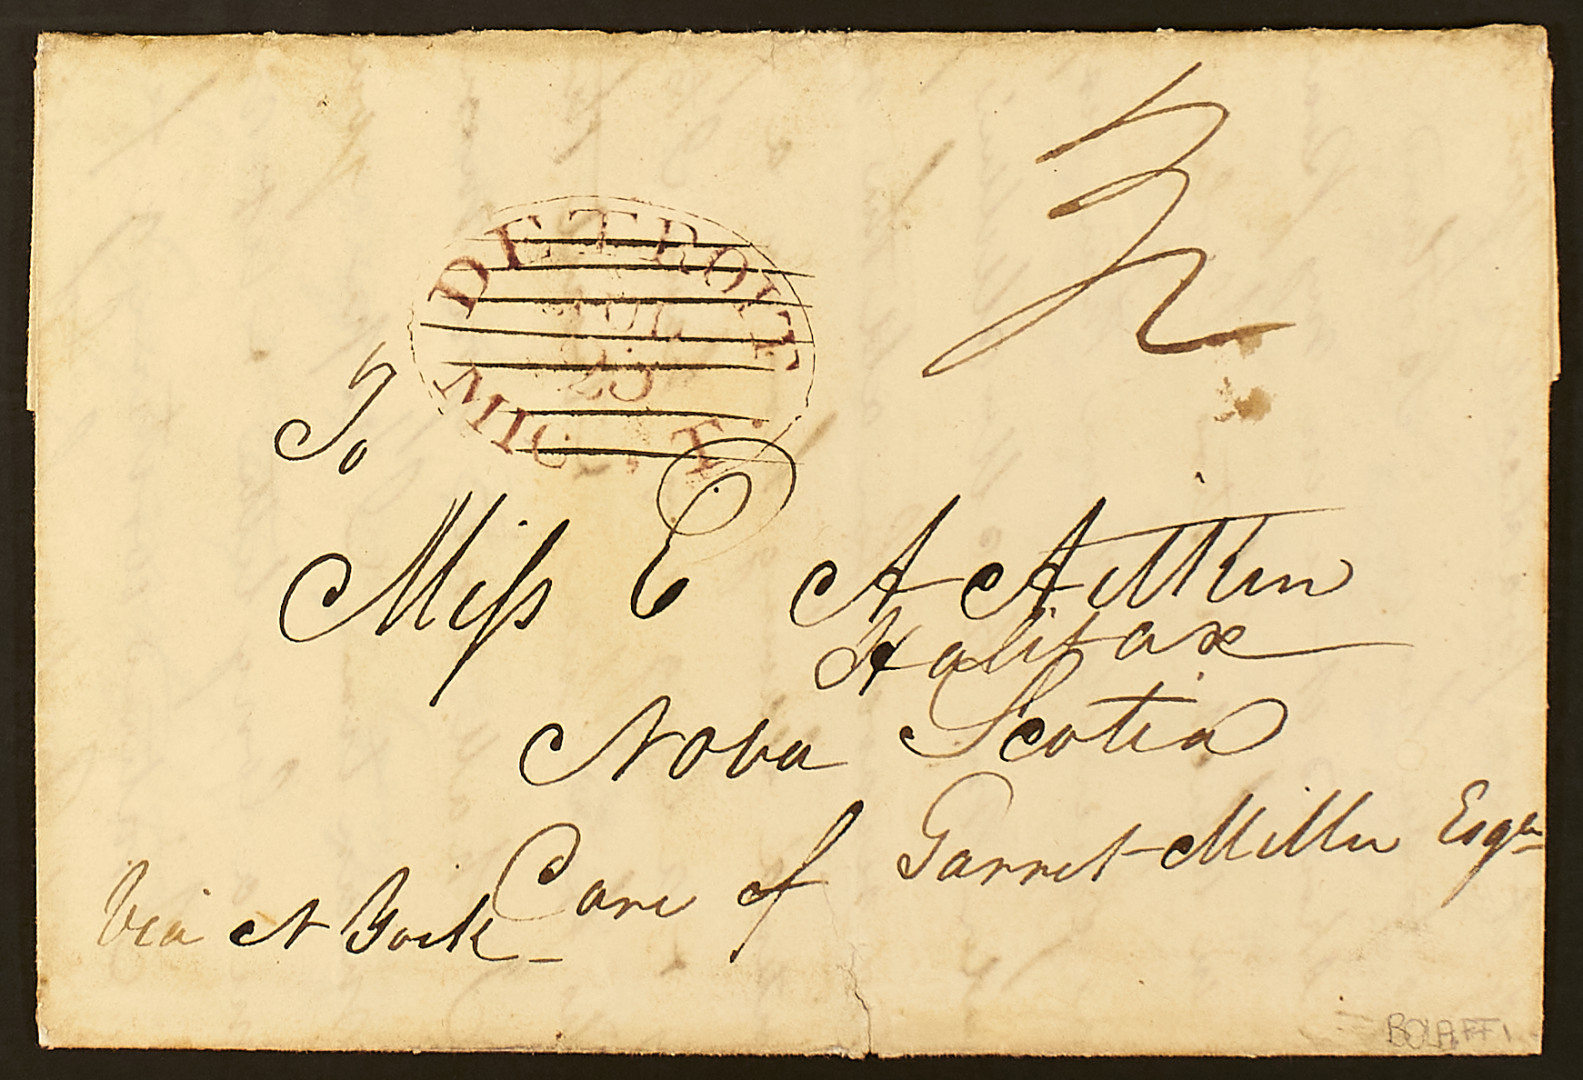 DETROIT
JUL
25
MIC. T.
To
Miss E A Aitkin
Halifax
Nova Scotia
Care of Garret Miller Esqr
Via N York
BOLAFFI